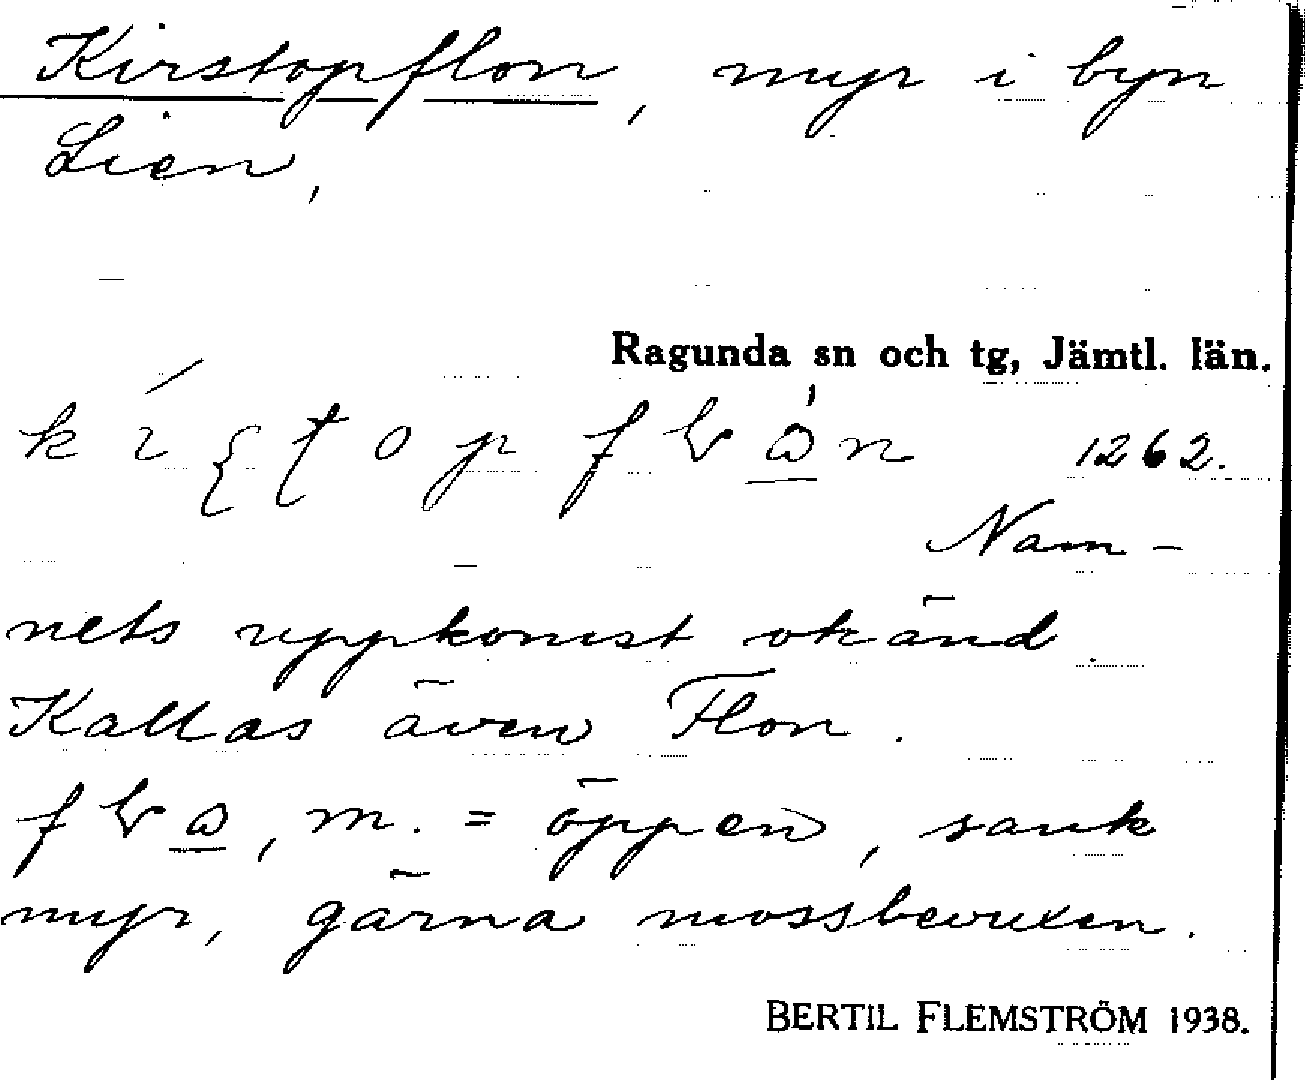 Kirstopflon, myr i byn
Lien,
Ragunda sn och tg, Jämtl. län.
1262.
Nam-
nets uppkomst okänd
Kallas även Flon.
m. = öppen, sank
myr, gärna mossbevuxen.
BERTIL FLEMSTRÖM 1938.